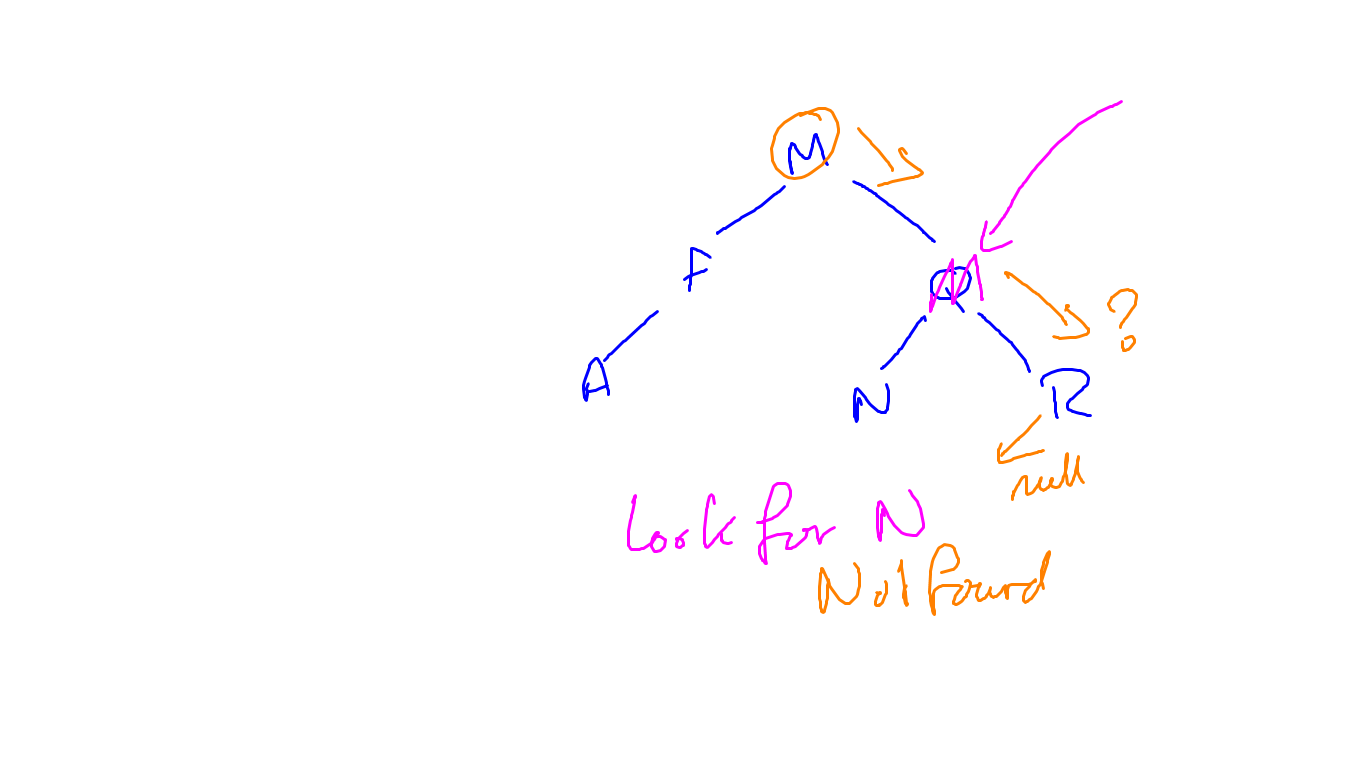 M
F
Q M ?
A
N
R
null
Look for N
Not found